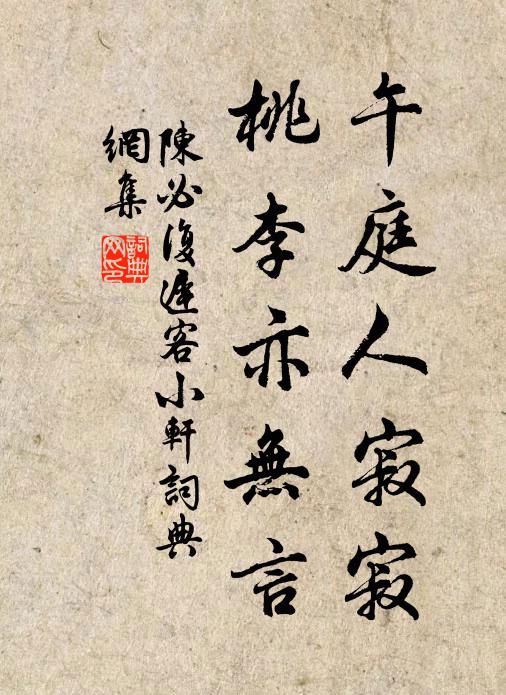 午庭人寂寂
桃李亦無言
陳必復遲客小軒詞典
網集
詞典
网印